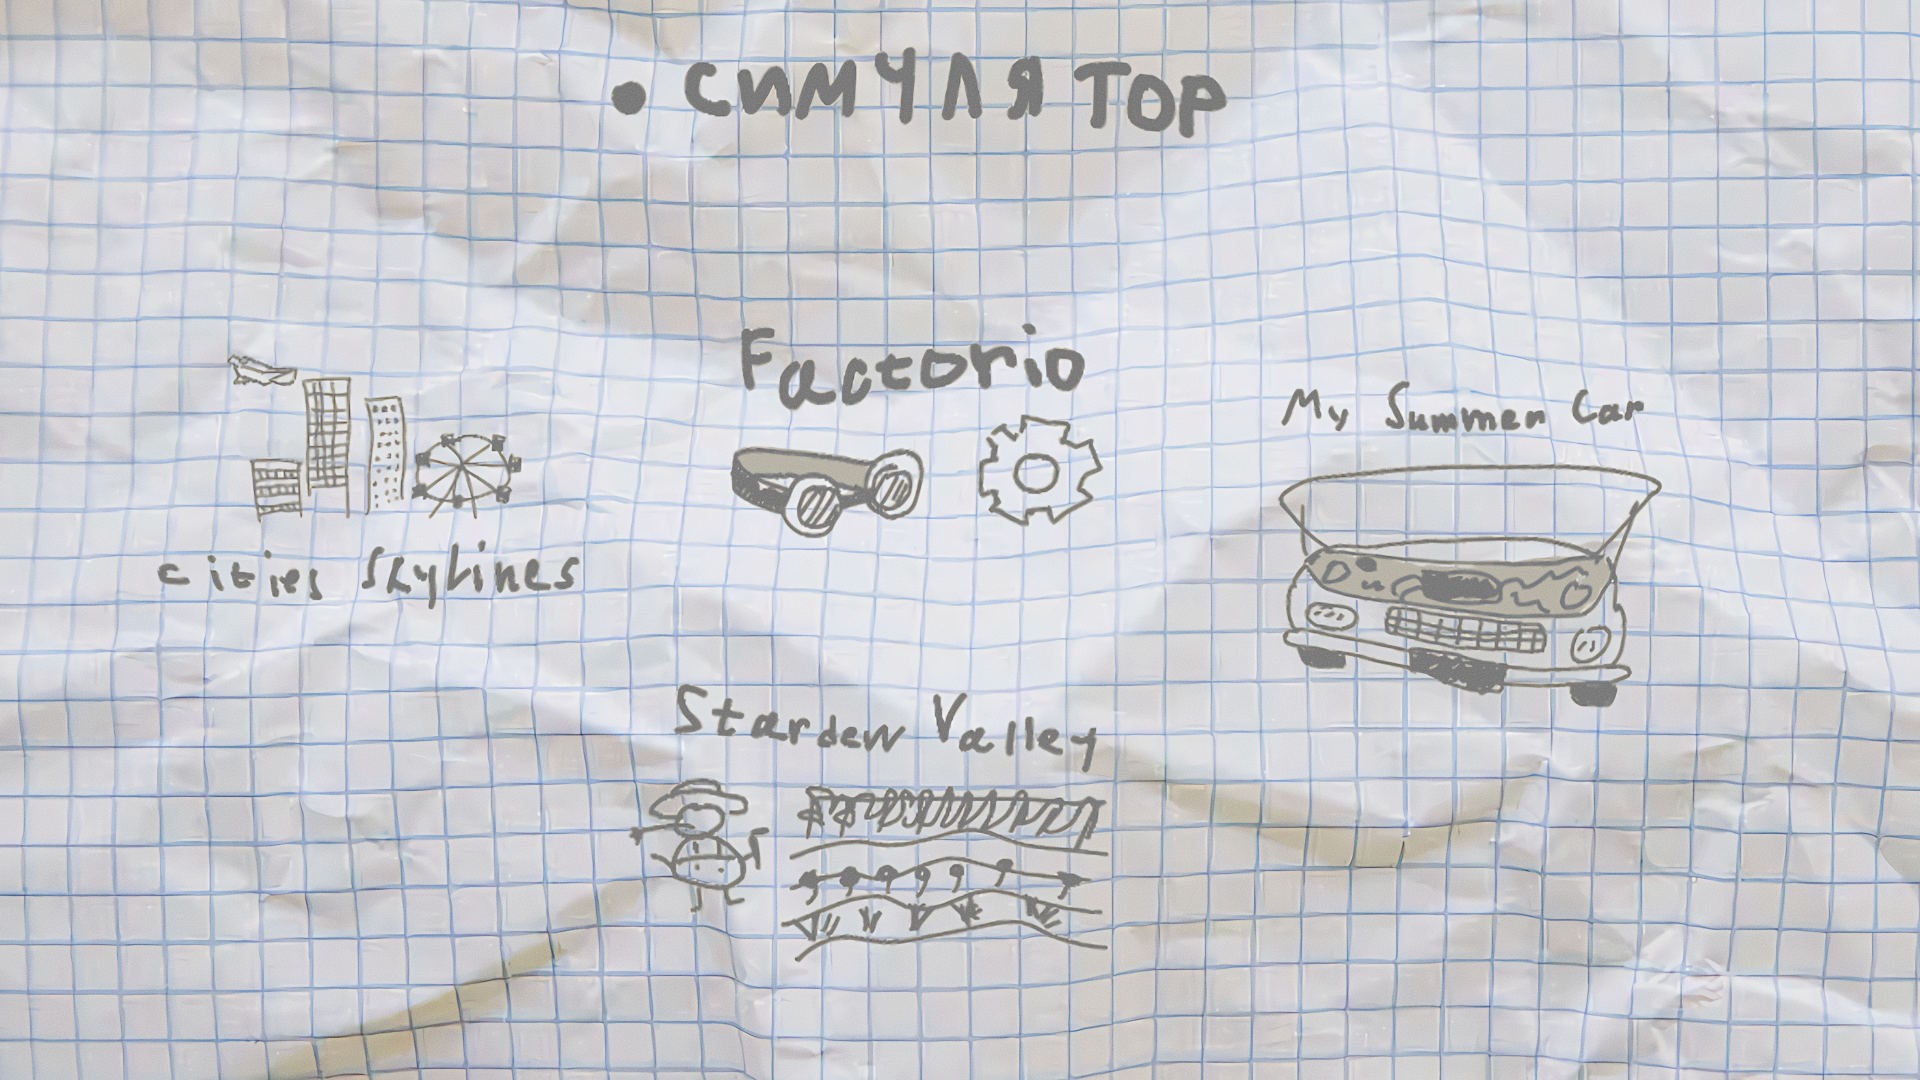 • СИМУЛЯТОР
Factorio
My Summer Car
cities skylines
Stardew Valley